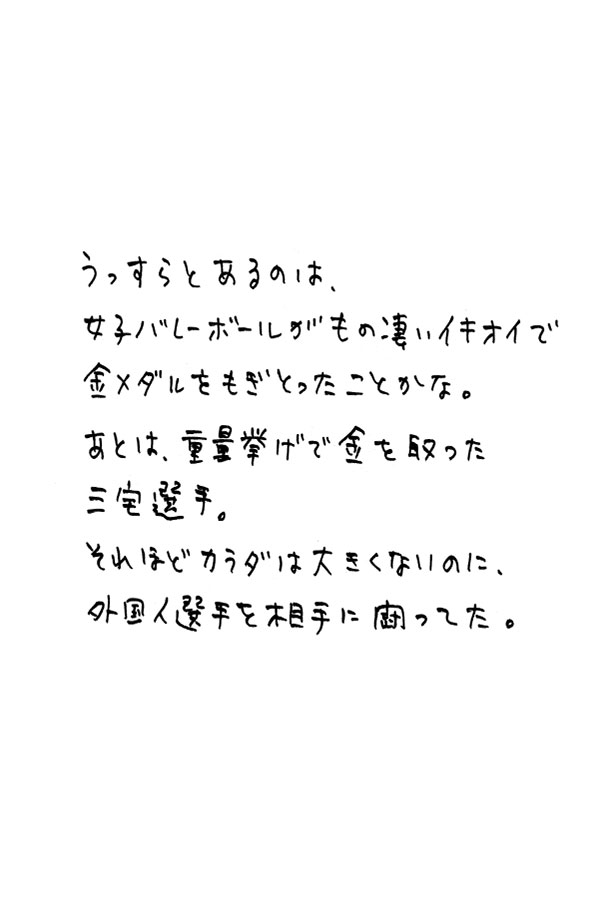 うっすらとあるのは、
女子バレーボールがもの凄いイキオイで
金メダルをもぎとったことかな。
あとは、重量挙げで金を取った
三宅選手。
それほどカラダは大きくないのに、
外国人選手を相手に闘ってた。